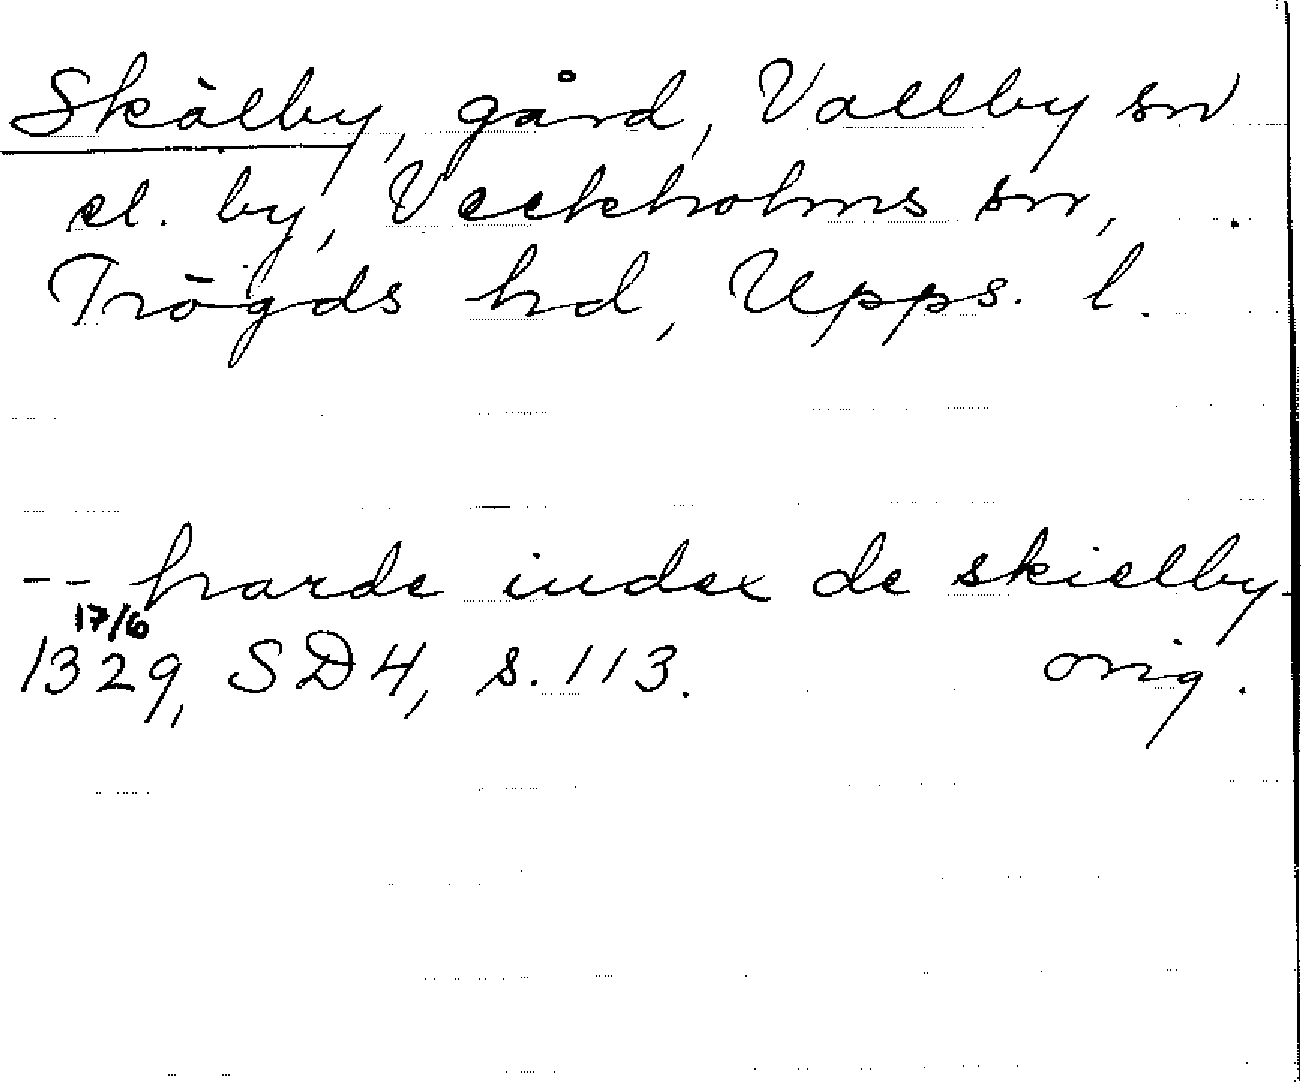 Skälby, gård, Vallby sn
el. by, Veckholms sn,
Trögds hd, Upps. l.
-- frarde iudex de skielby
17/6
1329, SD4, s. 113. orig.